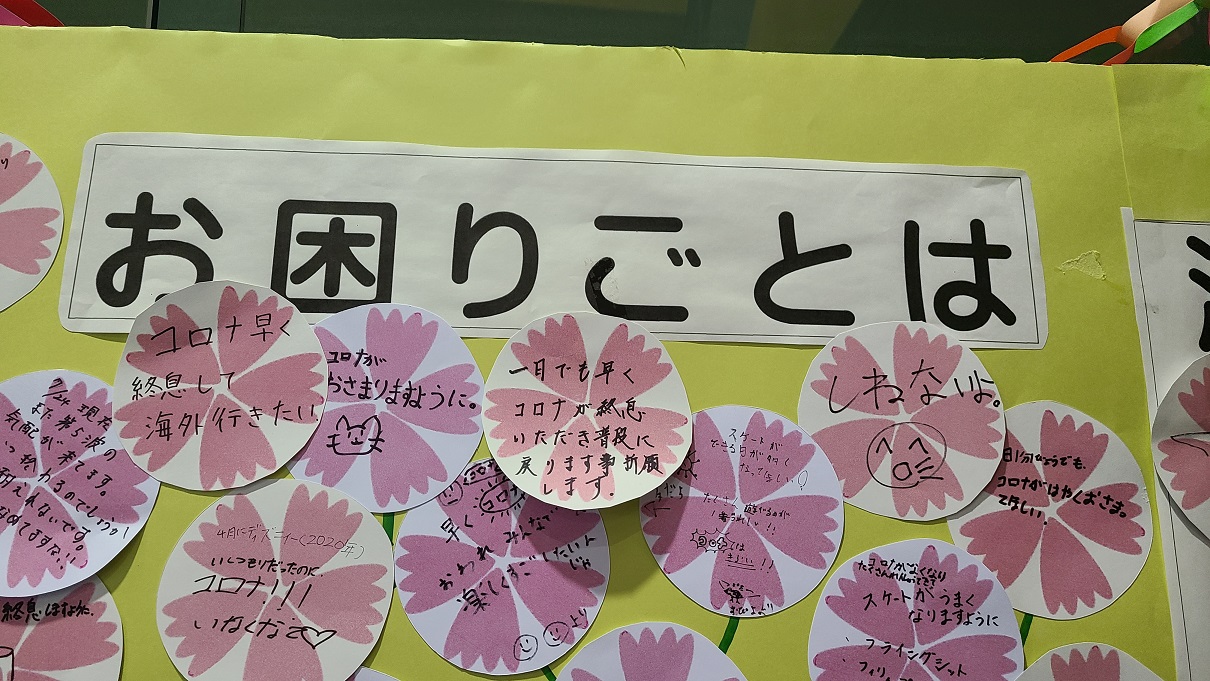 お困りごとは
コロナ早く
終息して
海外行きたい
コロナが
おさまりますように。
一日でも早く
コロナが終息
いただき普段に
戻ります事祈願
します。
しねないよ。
コロナがはやくおさま。
てほしい。
7/24 現在
また第5波の
気配が来てます。
いつ終わるのでしょうか
4月にディズニー(2020年)
いくつもりだったのに、
コロナ!!!
いなくなって♡
早く
おわれ みんなで
楽しくすごしたいよ
より
スケートが
できる日が多く
なってほしい
は
きらい!!
コロナがなくなり
スケートがうまく
なりますように
フライングシット
終息しますように